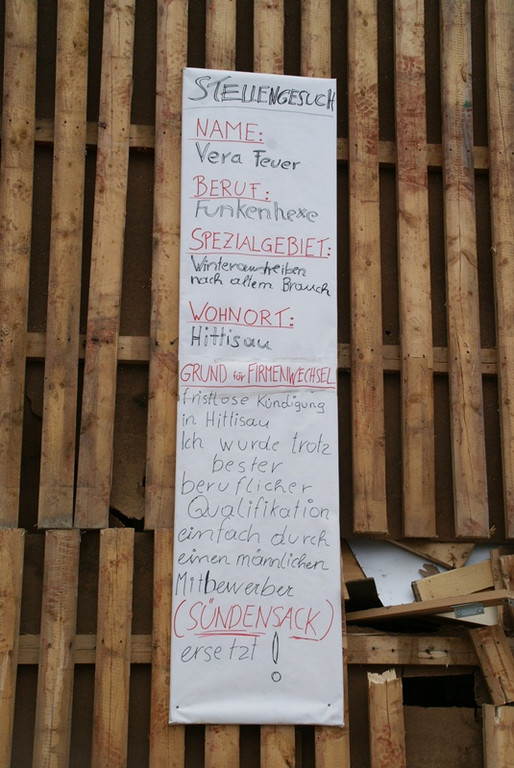 STELLENGESUCH
NAME:
Vera Feuer
BERUF:
Funkenhexe
SPEZIALGEBIET:
Winteraustreiben
nach altem Brauch
WOHNORT:
Hittisau
GRUND für FIRMENWECHSEL
fristlose Kündigung
in Hittisau
Ich wurde trotz
bester
beruflicher
Qualifikation
einfach durch
einen männlichen
Mitbewerber
(SÜNDENSACK)
ersetzt !